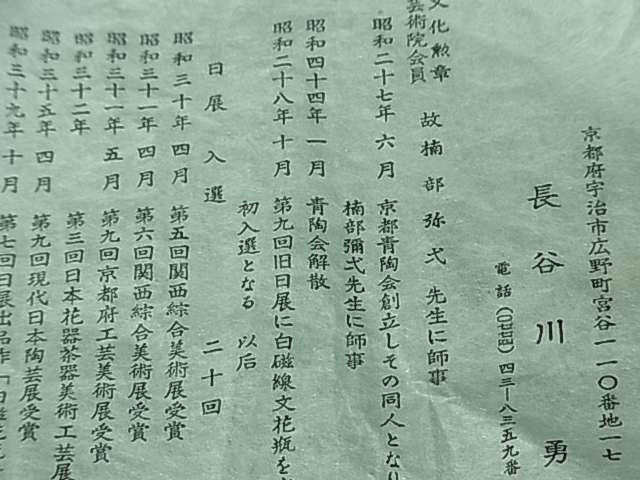 京都府宇治市広野町宮谷一一〇番地一七
長谷川 勇
電話(〇七七四)四三―八三五九番
文化勲章
芸術院会員
故楠部弥弌先生に師事
昭和二十七年 六月 京都青陶会創立しその同人となり
楠部彌弌先生に師事
昭和四十四年 一月 青陶会解散
昭和二十八年 十月 第九回旧日展に白磁線文花瓶を
初入選となる 以后
日展 入選 二十回
昭和三十年 四月 第五回関西綜合美術展受賞
昭和三十一年 四月 第六回関西綜合美術展受賞
昭和三十一年 五月 第九回京都府工芸美術展受賞
昭和三十二年 第三回日本花器茶器美術工芸展
昭和三十五年 四月 第九回現代日本陶芸展受賞
昭和三十九年 十月 第七回日展出品作「白磁